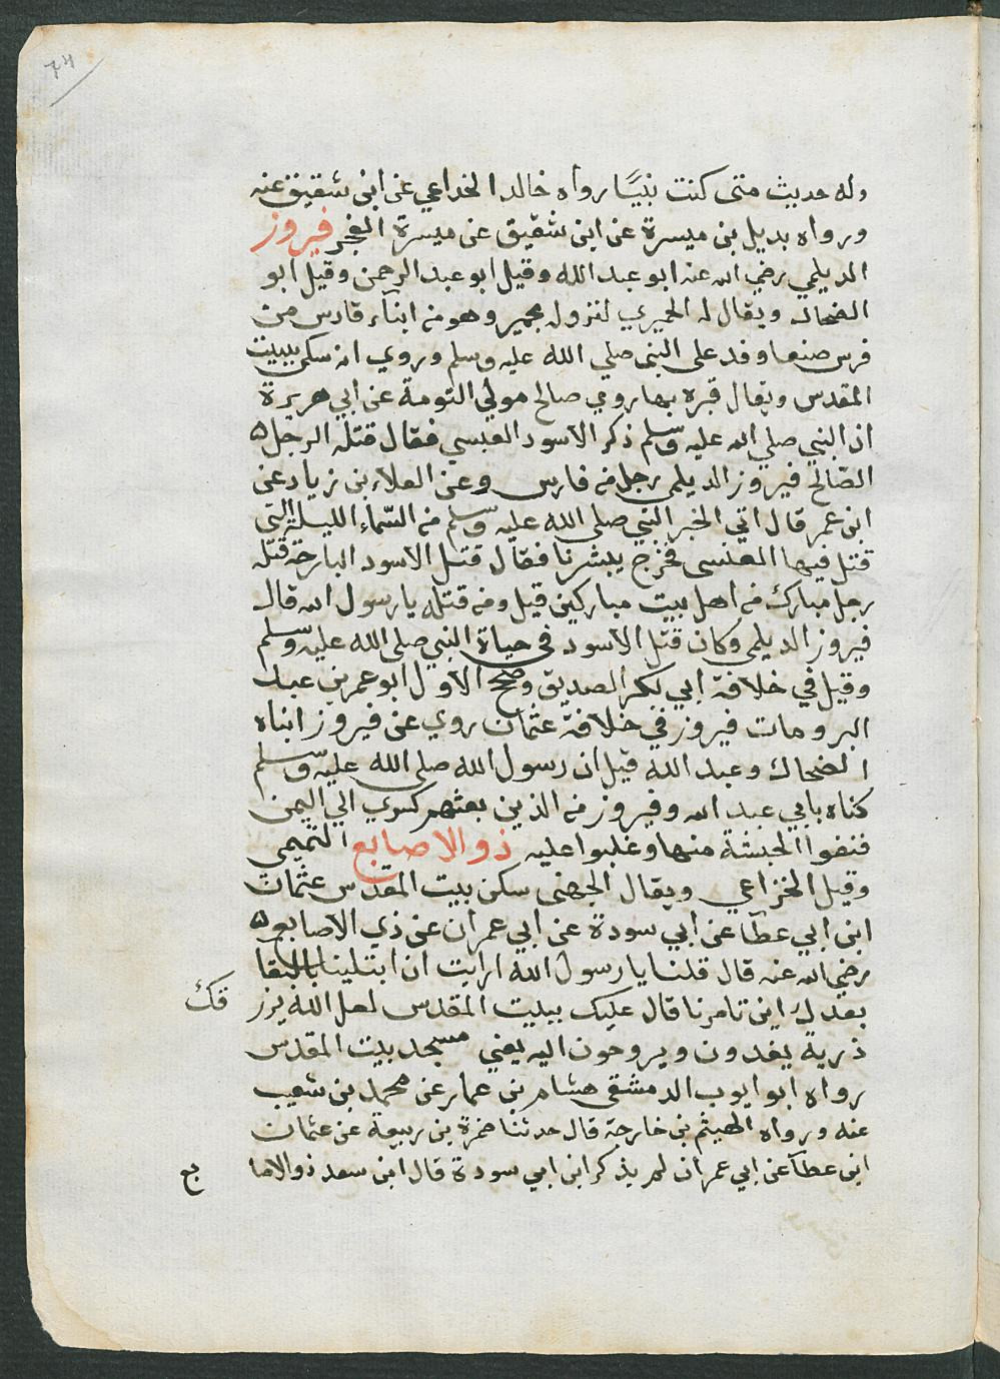 74
وله حديث متى كنت نبيًا رواه خالد الخداعي عن ابن شقيق عنه
ورواه بديل بن ميسرة عن ابن شقيق عن ميسرة الفجر فيروز
الديلمي رضي الله عنه ابو عبد الله وقيل ابو عبد الرحمن وقيل ابو
الضحاك ويقال له الحميري لنزوله بحمير وهو من ابنآء فارس من
فرس صنعا وفد على النبي صلي الله عليه وسلم وروي انه سكن ببيت
المقدس ويقال قبره بها روي صالح مولي التومة عن ابي هريرة
ان النبي صلي الله عليه وسلم ذكر الاسود العبسي فقال قتله الرجل
الصّالح فيروز الديلمي رجل من فارس وعن العلاء بن زياد عن
ابن عمر قال اتي الخبر النبي صلي الله عليه وسلم من السّماء الليلة التي
قتل فيها العنسى فخرج يبشرنا فقال قتل الاسود البارحة قتله
رجل مبارك من اهل بيت مباركين قيل ومن قتله يا رسول الله قال
فيروز الديلمي وكان قتل الاسود في حياة النبي صلي الله عليه وسلم
وقيل في خلافة ابي بكر الصديق وصحح الاول ابو عمر بن عبد
البر ومات فيروز في خلافة عثمان روي عن فيروز ابناه
الضحاك وعبد الله قيل ان رسول الله صلى الله عليه وسلم
كناه بابي عبد الله وفيروز من الذين بعثهم كسري الي اليمن
فنفوا الحبشة منها وغلبوا عليه ذو الاصابع التميمي
وقيل الخزاعي ويقال الجهني سكن بيت المقدس عثمان
ابن ابي عطآ عن ابي سودة عن ابي عمران عن ذي الاصابع
رضي الله عنه قال قلنا يا رسول الله ارايت ان ابتلينا بالبقا
بعدك اين تامرنا قال عليك ببيت المقدس لعل الله يرز قك
ذرية يغدون ويروحون اليه يعني مسجد بيت المقدس
رواه ابو ايوب الدمشقي هشام بن عمار عن محمد بن شعيب
عنه ورواه الهيثم بن خارجة قال حدثنا ضمرة بن ربيعة عن عثمان
ابن عطآ عن ابي عمران لم يذكر ابن ابي سودة قال ابن سعد ذو الاصا بع